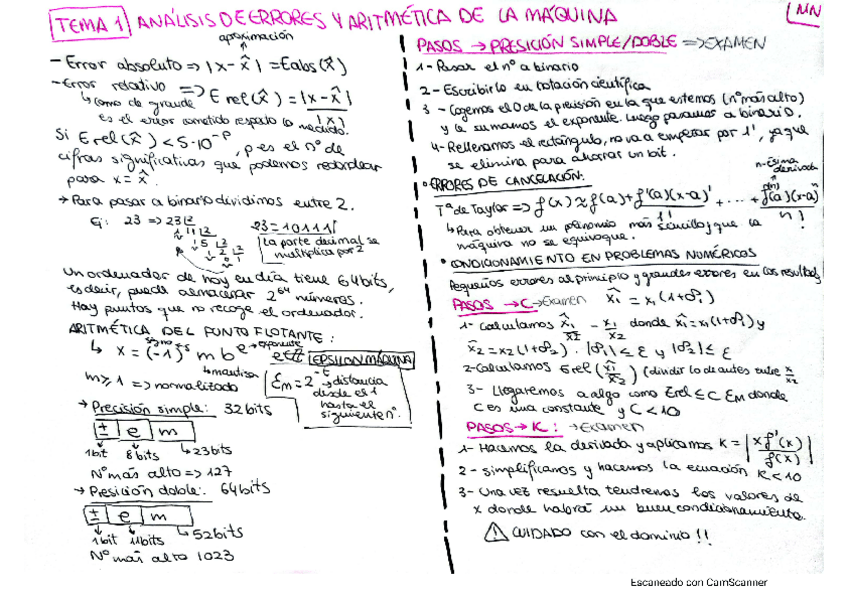 TEMA 1 ANÁLISIS DE ERRORES Y ARITMÉTICA DE LA MÁQUINA
MN
aproximación
- Error absoluto => |x - x̂| = Eabs(x̂)
- Error relativo => E rel(x̂) = |x - x̂| / |x|
↳ como de grande
es el error cometido respecto lo medido.
Si E rel(x̂) < 5·10^-p, p es el nº de
cifras significativas que podemos redondear
para x = x̂.
→ Para pasar a binario dividimos entre 2.
Ej: 23 => 23 |2
11 |2
1 5 |2
1 2 |2
0 1
23 = 10111
La parte decimal se
multiplica por 2
Un ordenador de hoy en día tiene 64 bits,
es decir, puede almacenar 2^64 números.
Hay puntos que no recoge el ordenador.
ARITMÉTICA DEL PUNTO FLOTANTE:
signo
↳ x = (-1)^s m b^e → exponente
↳ mantisa
EPSILON MÁQUINA
m ≥ 1 => normalizado
εM = 2^-t → distancia
desde el 1
hasta el
siguiente nº.
→ Precisión simple: 32 bits
± | e | m
1 bit 8 bits ↳ 23 bits
Nº más alto => 127
→ Presición doble: 64 bits
± | e | m
1 bit 11 bits ↳ 52 bits
Nº más alto 1023
PASOS → PRESICIÓN SIMPLE/DOBLE => EXAMEN
1- Pasar el nº a binario
2- Escribirlo en notación científica
3 - Cogemos el 0 de la precisión en la que estemos (nº más alto)
y le sumamos el exponente. Luego pasamos a binario.
4- Rellenamos el rectángulo, no va a empezar por 1, ya que
se elimina para ahorrar un bit.
n-ésima
derivada
° ERRORES DE CANCELACIÓN:
Tª de Taylor => f(x) ≈ f(a) + f'(a)(x-a)' / 1! + ... + f(n)(a)(x-a)^n / n!
↳ Para obtener un polinomio más sencillo y que la
máquina no se equivoque.
° CONDICIONAMIENTO EN PROBLEMAS NUMÉRICOS
Pequeños errores al principio y grandes errores en los resultados
PASOS → C → Examen x̂1 = x1(1+δ1)
1- Calculamos x̂1/x̂2 - x1/x2 donde x̂1 = x1(1+δ1) y
x̂2 = x2(1+δ2). |δ1| ≤ ε y |δ2| ≤ ε
2- Calculamos Erel(x̂1/x̂2) (dividir lo de antes entre x/x2
3- Llegaremos a algo como Erel ≤ C εM donde
C es una constante y C < 10
PASOS → K: → Examen
1- Hacemos la derivada y aplicamos K = |x f'(x) / f(x)|
2 - simplificamos y hacemos la ecuación K < 10
3- Una vez resuelta tendremos los valores de
x donde habrá un buen condicionamiento.
⚠ CUIDADO con el dominio !!
Escaneado con CamScanner